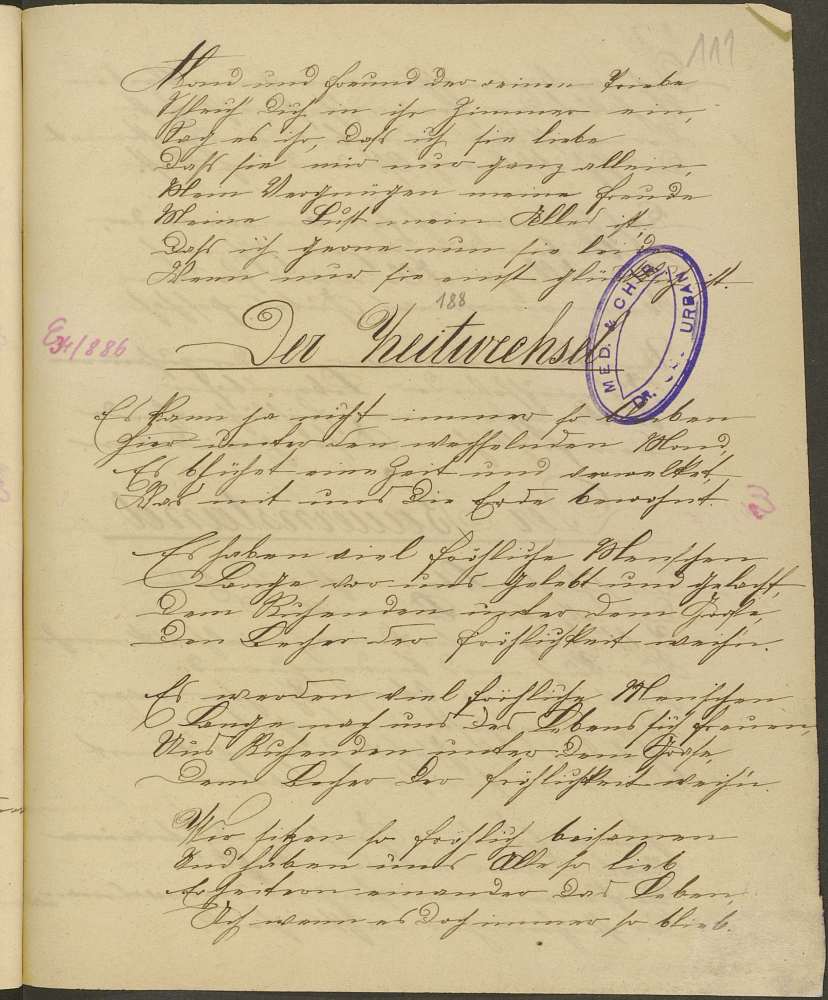 111
Mond und Freund der reinen Triebe
Schleich Dich in ihr Zimmer ein,
Sag es ihr, daß ich sie liebe
Daß sie mir nur ganz allein,
Mein Vergnügen meine Freude
Meine Lust mein Alles ist,
Daß ich gerne nun sie leide
Wenn nur sie einst glücklich ist.
188
Der Zeitwechsel
E 34/886
MED. & CHIR.
Dr. URBAN
Es kann ja nicht immer so bleiben
Hier unter den wechselnden Mond,
Es blühet eine Zeit und verwelket,
Was mit uns die Erde bewohnt.
Es haben viel fröhliche Menschen
Lange vor uns gelebt und gelacht,
Dem Ruhenden unter dem Grase,
Den Becher der Fröhlichkeit weih'n.
Es werden viel fröhliche Menschen
Lange nach uns des Lebens sich freuen,
Uns Ruhenden unter dem Grase,
Dem Becher der Fröhlichkeit weih'n.
Wir sitzen so fröhlich beisamen
Und haben uns Alle so lieb
Erheitern einander das Leben,
Ach wenn es doch immer so blieb.